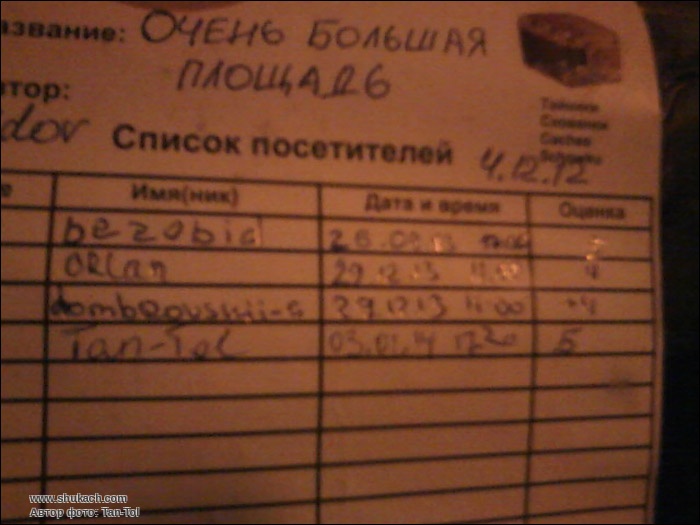 азвание: ОЧЕНЬ БОЛЬШАЯ
ПЛОЩАДЬ
втор:
dov Список посетителей 4.12.12
Тайники
Схованки
Caches
е Имя(ник) Дата и время Оценка
bezobia
ORLan 29.12.13 11.00 4
dombrovskii-s 29.12.13 11.00 +4
Tan-Tol 03.01.14 1720 5
www.shukach.com
Автор фото: Tan-Tol